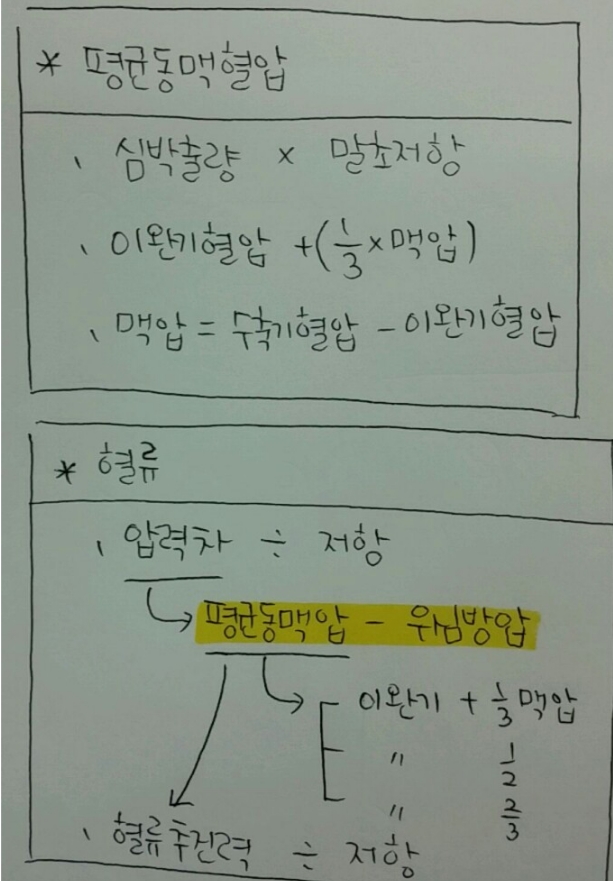 * 평균동맥혈압
、심박출량 × 말초저항
、이완기혈압 +(1/3×맥압)
、맥압 = 수축기혈압 - 이완기혈압
* 혈류
、압력차 ÷ 저항
↳ 평균동맥압 - 우심방압
→ 이완기 + 1/3 맥압
〃 1/2
〃 2/3
、혈류추진력 ÷ 저항